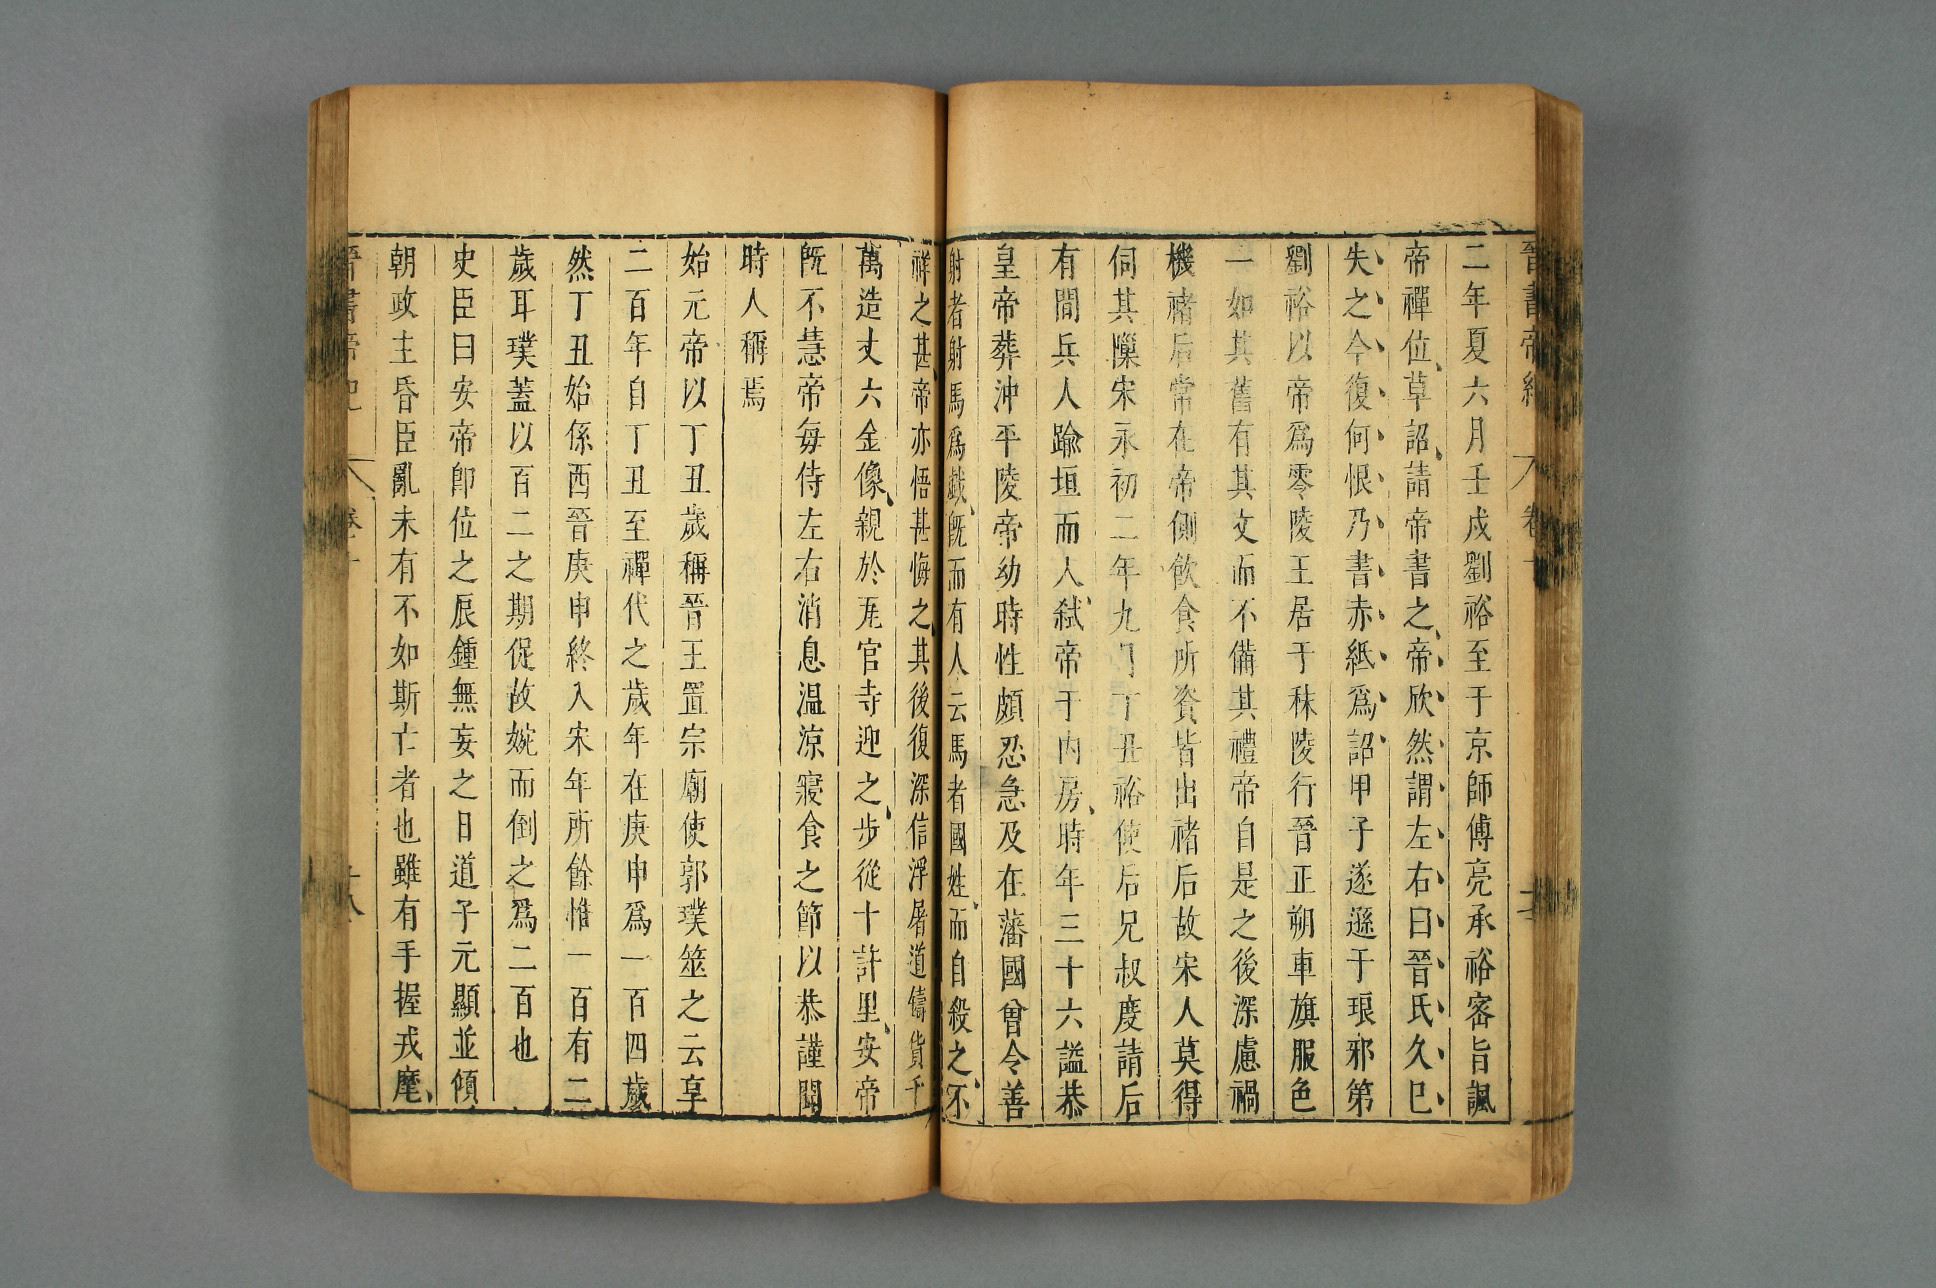 晉書帝紀 卷十
二年夏六月壬戌劉裕至于京師傅亮承裕密旨諷
帝禪位草詔請帝書之帝欣然謂左右曰晉氏久已
失之今復何恨乃書赤紙爲詔甲子遂遜于琅邪第
劉裕以帝爲零陵王居于秣陵行晉正朔車旗服色
一如其舊有其文而不備其禮帝自是之後深慮禍
機褚后常在帝側飮食所資皆出褚后故宋人莫得
伺其隟宋永初二年九月丁丑裕使后兄叔度請后
有間兵人踰垣而入弒帝于内房時年三十六謚恭
皇帝葬沖平陵帝幼時性頗忍急及在藩國曾令善
射者射馬爲戲旣而有人云馬者國姓而自殺之不
祥之甚帝亦悟甚悔之其後復深信浮屠道鑄貨千
萬造丈六金像親於瓦官寺迎之步從十許里安帝
旣不慧帝每侍左右消息温涼寢食之節以恭謹聞
時人稱焉
始元帝以丁丑歲稱晉王置宗廟使郭璞筮之云享
二百年自丁丑至禪代之歲年在庚申爲一百四歲
然丁丑始係西晉庚申終入宋年所餘惟一百有二
歲耳璞蓋以百二之期促故婉而倒之爲二百也
史臣曰安帝卽位之辰鍾無妄之日道子元顯並傾
朝政主昏臣亂未有不如斯亡者也雖有手握戎麾
晉書帝紀 卷十 十八